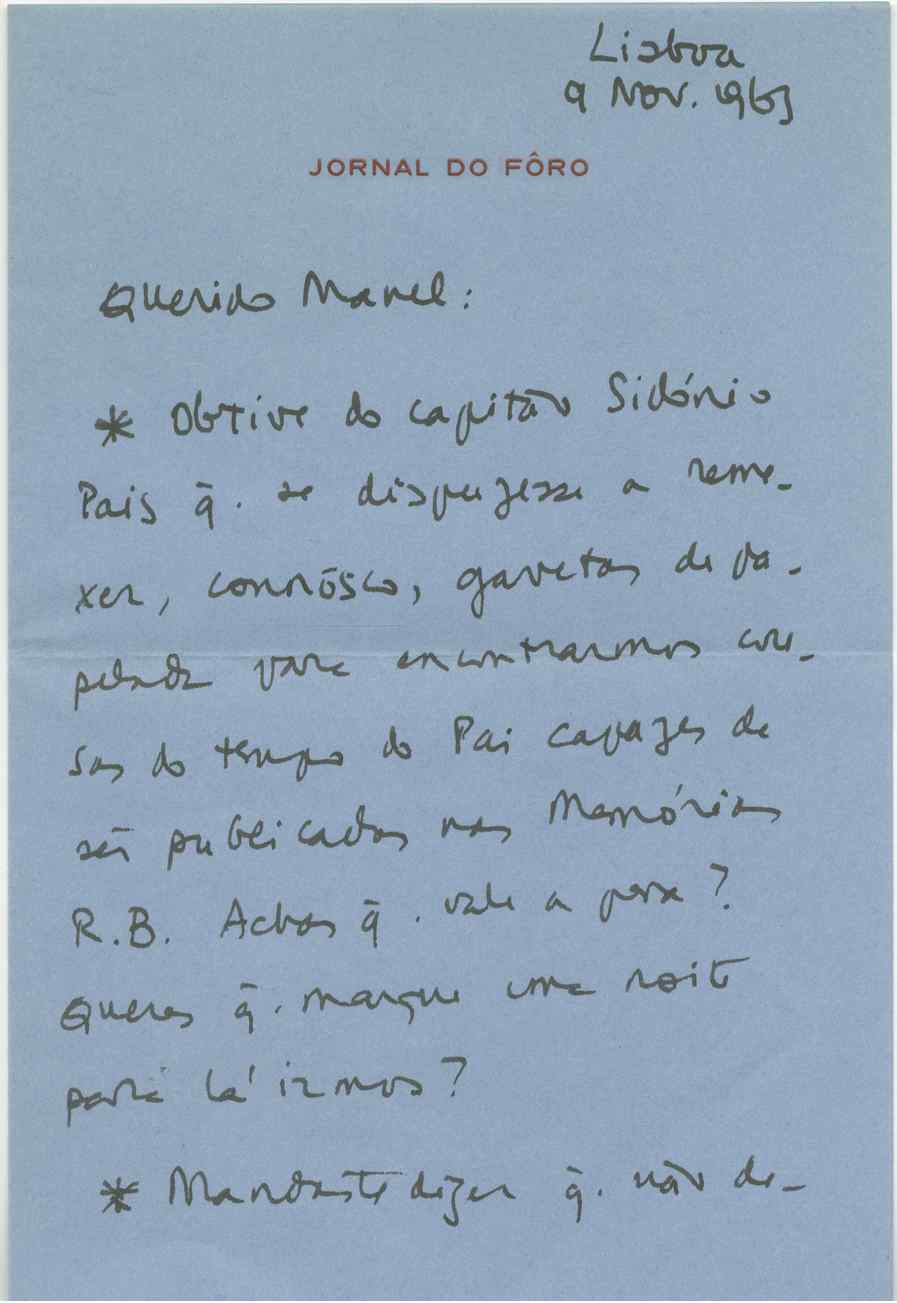 Lisboa
9 Nov. 1963
JORNAL DO FÔRO
Querido Manel:
* Obtive do capitão Sidónio
Pais q̄. se dispuzesse a reme-
xer, connôsco, gavetas de pa-
pelada para encontrarmos coi-
sas do tempo do Pai capazes de
ser publicadas nas Memórias
R.B. Achas q̄. vale a pena?
Queres q̄. marque uma noite
para lá irmos?
* Mandaste dizer q̄. não de-